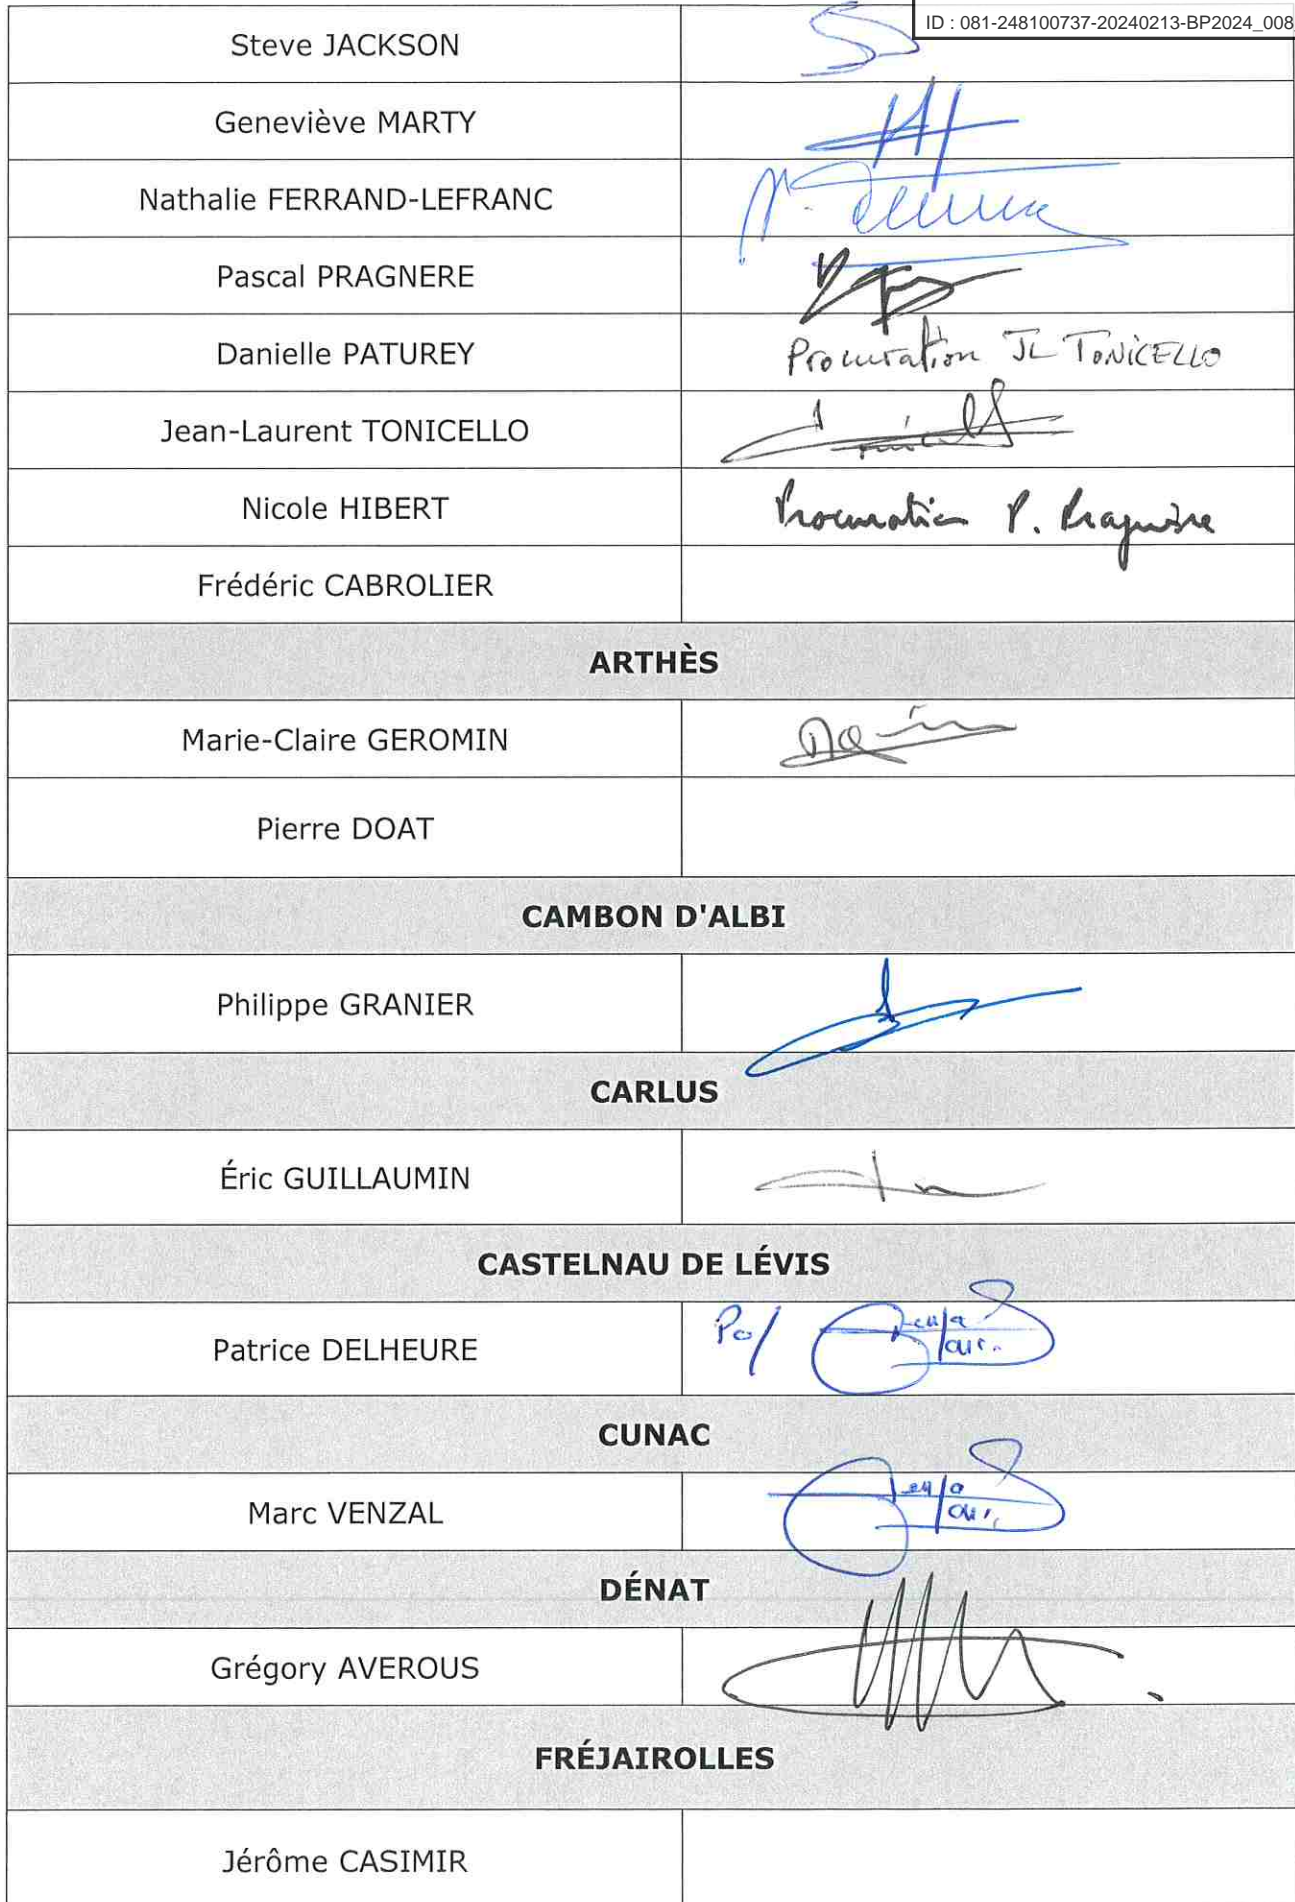 ID : 081-248100737-20240213-BP2024_008
Steve JACKSON
Geneviève MARTY
Nathalie FERRAND-LEFRANC
Pascal PRAGNERE
Danielle PATUREY
Procuration JL TONICELLO
Jean-Laurent TONICELLO
Nicole HIBERT
Procuration P. Pragnère
Frédéric CABROLIER
ARTHÈS
Marie-Claire GEROMIN
Pierre DOAT
CAMBON D'ALBI
Philippe GRANIER
CARLUS
Éric GUILLAUMIN
CASTELNAU DE LÉVIS
Patrice DELHEURE
Po/
CUNAC
Marc VENZAL
DÉNAT
Grégory AVEROUS
FRÉJAIROLLES
Jérôme CASIMIR